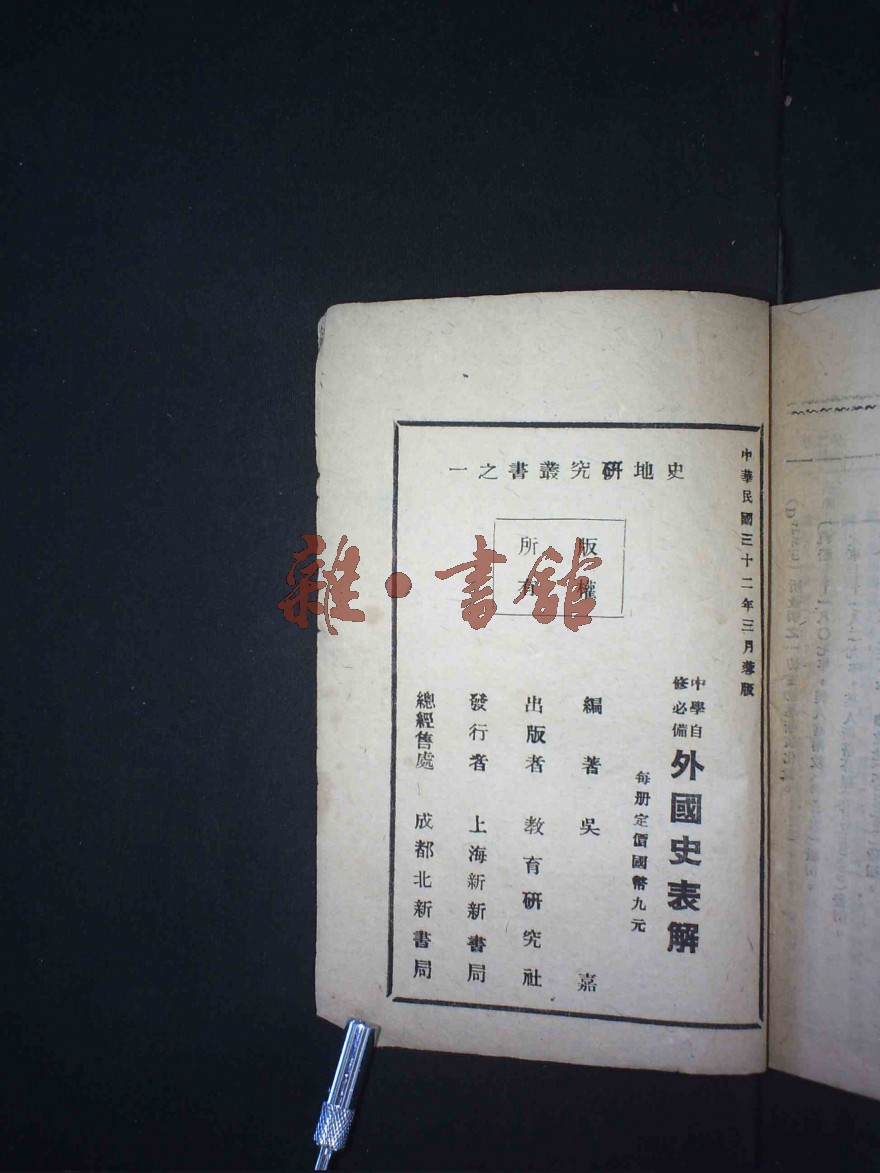 中華民國三十二年三月蓉版
史地研究叢書之一
版權
所有
中學自
修必備
外國史表解
每册定價國幣九元
編著 吳嘉
出版者 教育研究社
發行者 上海新新書局
總經售處 成都北新書局
雜·書館